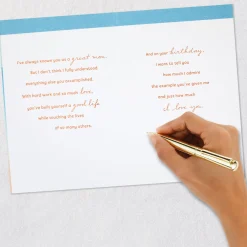 I've always known you as a great man,
But I don't think I fully understood
everything else you accomplished.
With hard work and so much love,
you've built yourself a good life
while touching the lives
of so many others.
And on your birthday,
I want to tell you
how much I admire
the example you've given me
and just how much
I love you.